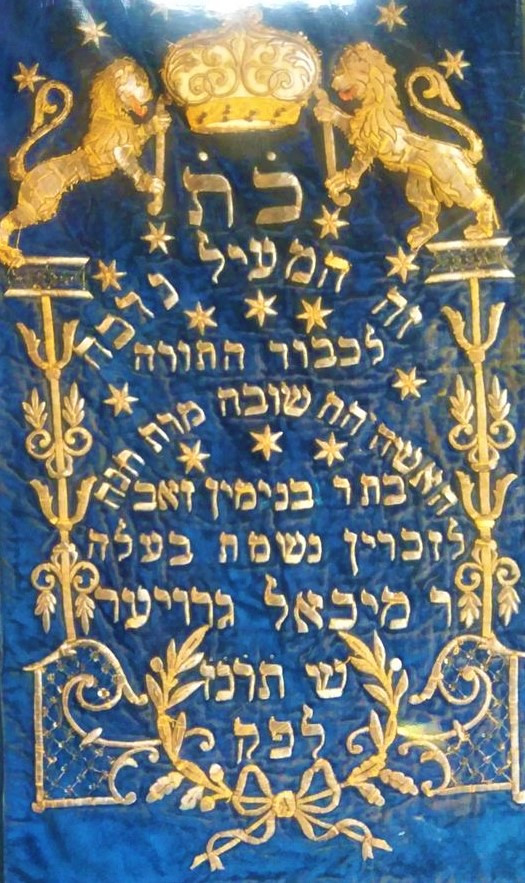 כׄ תׄ
זה המעיל נדבה
לכבוד התורה
האשה החשובה מרת חנה
בת ר בנימין זאב
לזכרון נשמת בעלה
ר מיכאל גרויער
ש תרכז
לפק